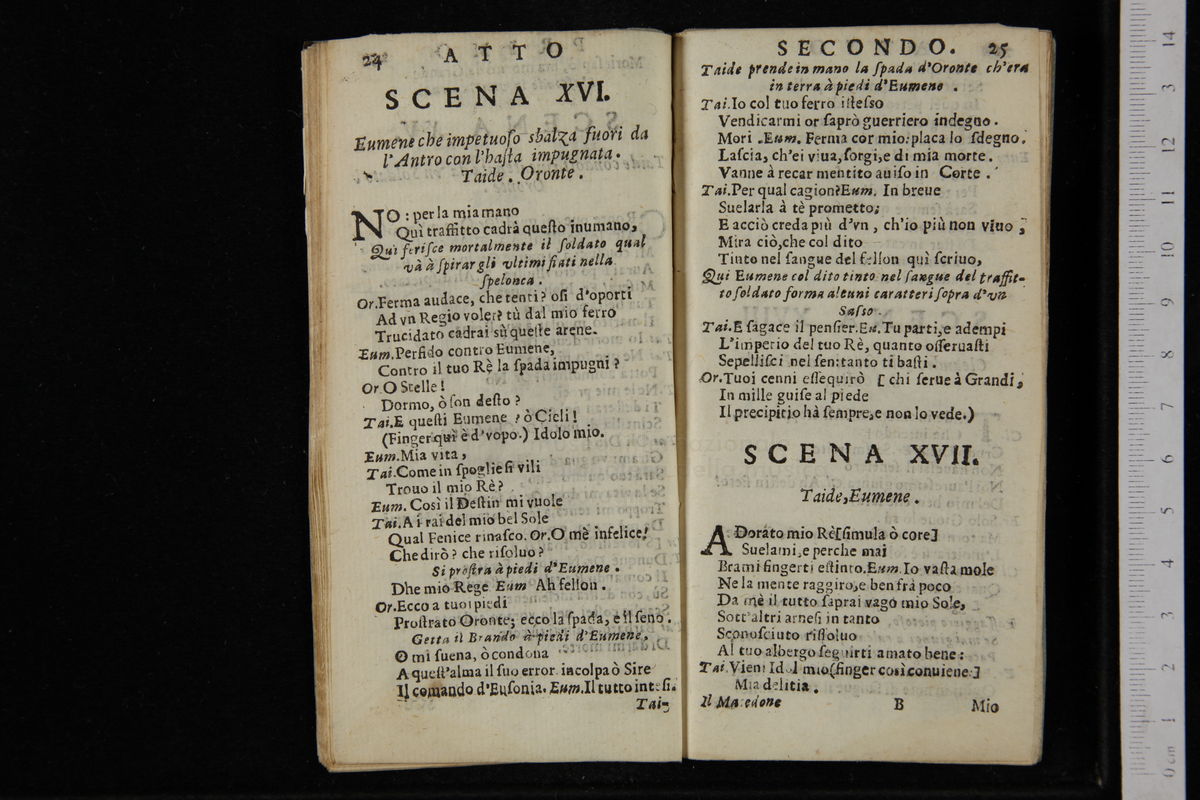 24 ATTO
SCENA XVI.
Eumene che impetuoſo sbalza fuori da
l'Antro con l'haſta impugnata.
Taide. Oronte.
NO: per la mia mano
Quì traffitto cadrà queſto inumano,
Quì feriſce mortalmente il ſoldato qual
và à ſpirar gli vltimi fiati nella
ſpelonca.
Or. Ferma audace, che tenti? oſi d'oporti
Ad vn Regio voler? tù dal mio ferro
Trucidato cadrai sù queſte arene.
Eum. Perfido contro Eumene,
Contro il tuo Rè la ſpada impugni?
Or. O Stelle!
Dormo, ò ſon deſto?
Tai. E queſti Eumene? ò Cieli!
(Finger quì è d'vopo.) Idolo mio.
Eum. Mia vita,
Tai. Come in ſpoglie ſi vili
Trouo il mio Rè?
Eum. Così il Deſtin mi vuole
Tai. A i rai del mio bel Sole
Qual Fenice rinaſco. Or. O mè infelice!
Che dirò? che riſoluo?
Si proſtra à piedi d'Eumene.
Dhe mio Rege Eum Ah fellon.
Or. Ecco a tuoi piedi
Proſtrato Oronte; ecco la ſpada, e il ſeno.
Getta il Brando à piedi d'Eumene,
O mi ſuena, ò condona
A queſt'alma il ſuo error incolpa ò Sire
Il comando d'Euſonia. Eum. Il tutto inteſi.
Tai-
SECONDO. 25
Taide prende in mano la ſpada d'Oronte ch'era
in terra à piedi d'Eumene.
Tai. Io col tuo ferro iſteſso
Vendicarmi or ſaprò guerriero indegno.
Mori. Eum. Ferma cor mio: placa lo ſdegno.
Laſcia, ch'ei viua, ſorgi, e di mia morte.
Vanne à recar mentito auiſo in Corte.
Tai. Per qual cagion? Eum. In breue
Suelarla à tè prometto;
E acciò creda più d'vn, ch'io più non viuo;
Mira ciò, che col dito
Tinto nel ſangue del fellon quì ſcriuo,
Quì Eumene col dito tinto nel ſangue del traffit-
to ſoldato forma alcuni caratteri ſopra d'vn
Saſso.
Tai. E ſagace il penſier. Eu. Tu parti, e adempi
L'imperio del tuo Rè, quanto oſſeruaſti
Sepelliſci nel ſen: tanto ti baſti.
Or. Tuoi cenni eſſequirò [chi ſerue à Grandi,
In mille guiſe al piede
Il precipitio hà ſempre, e non lo vede.)
SCENA XVII.
Taide, Eumene.
ADorato mio Rè [ſimula ò core]
Suelami, e perche mai
Brami fingerti eſtinto. Eum. Io vaſta mole
Ne la mente raggiro, e ben frà poco
Da mè il tutto ſaprai vago mio Sole,
Sott'altri arneſi in tanto
Sconoſciuto riſſoluo
Al tuo albergo ſeguirti amato bene:
Tai. Vieni Idol mio [finger così conuiene]
Mia delitia.
Il Macedone B Mio